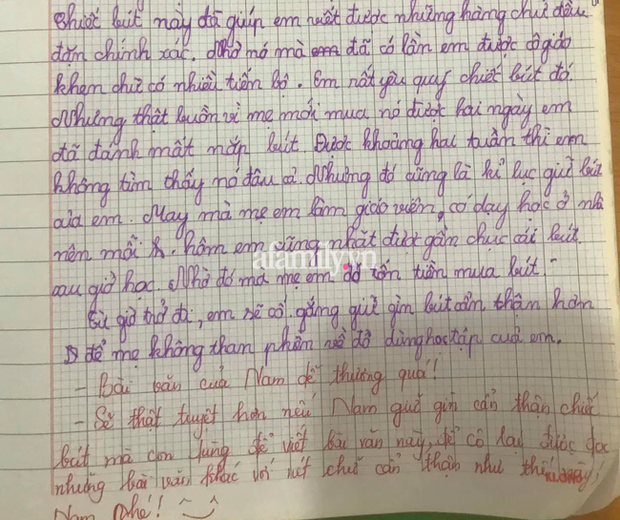 Chiếc bút này đã giúp em viết được những hàng chữ đều
đặn chính xác. Nhờ nó mà đã có lần em được cô giáo
khen chữ có nhiều tiến bộ. Em rất yêu quý chiếc bút đó.
Nhưng thật buồn vì mẹ mới mua nó được hai ngày em
đã đánh mất nắp bút. Được khoảng hai tuần thì em
không tìm thấy nó đâu cả. Nhưng đó cũng là kỉ lục giữ bút
của em. May mà mẹ em làm giáo viên, có dạy học ở nhà
nên mỗi hôm em cũng nhặt được gần chục cái bút
sau giờ học. Nhờ đó mà mẹ em đỡ tốn tiền mua bút.
afamily.vn
Từ giờ trở đi, em sẽ cố gắng giữ gìn bút cẩn thận hơn
để mẹ không than phiền về đồ dùng học tập của em.
- Bài văn của Nam dễ thương quá!
- Sẽ thật tuyệt hơn nếu Nam giữ gìn cẩn thận chiếc
bút mà con dùng để viết bài văn này, để cô lại được đọc
những bài văn khác với nét chữ cẩn thận như thế này
Nam nhé!